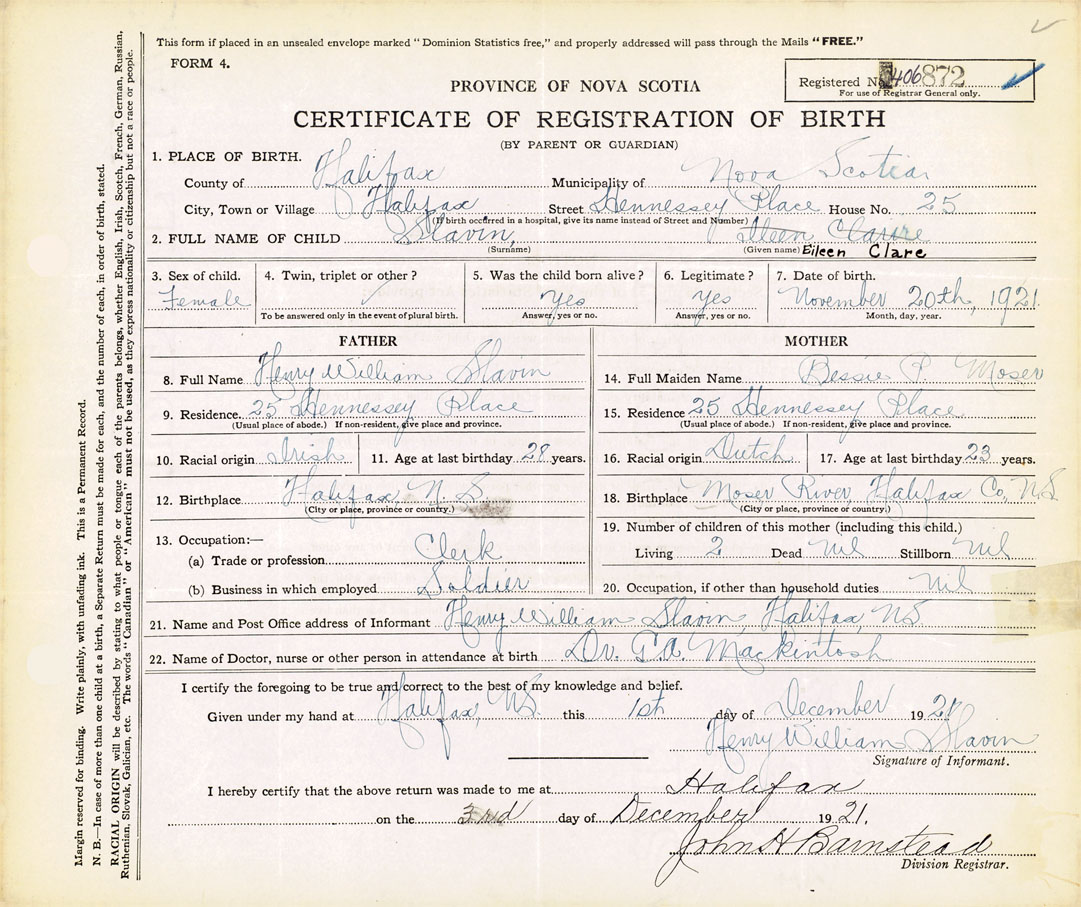 This form if placed in an unsealed envelope marked "Dominion Statistics free," and properly addressed will pass through the Mails "FREE."
FORM 4.
Registered No. 406872
For use of Registrar General only.
PROVINCE OF NOVA SCOTIA
CERTIFICATE OF REGISTRATION OF BIRTH
(BY PARENT OR GUARDIAN)
1. PLACE OF BIRTH.
County of Halifax Municipality of Nova Scotia
City, Town or Village Halifax Street Hennessey Place House No. 25
(If birth occurred in a hospital, give its name instead of Street and Number)
2. FULL NAME OF CHILD Slavin, Ileen Claire
(Surname) (Given name) Eileen Clare
3. Sex of child. 4. Twin, triplet or other? 5. Was the child born alive? 6. Legitimate? 7. Date of birth.
Female Yes Yes November 20th, 1921.
To be answered only in the event of plural birth. Answer, yes or no. Answer, yes or no. Month, day, year.
FATHER
8. Full Name Henry William Slavin
9. Residence. 25 Hennessey Place
(Usual place of abode.) If non-resident, give place and province.
10. Racial origin Irish 11. Age at last birthday 28 years.
12. Birthplace Halifax N.S.
(City or place, province or country.)
13. Occupation:—
(a) Trade or profession Clerk
(b) Business in which employed Soldier
MOTHER
14. Full Maiden Name Bessie P. Moser
15. Residence 25 Hennessey Place
(Usual place of abode.) If non-resident, give place and province.
16. Racial origin Dutch 17. Age at last birthday 23 years.
18. Birthplace Moser River, Halifax Co. N.S.
(City or place, province or country.)
19. Number of children of this mother (including this child.)
Living 2 Dead Nil Stillborn Nil
20. Occupation, if other than household duties Nil
21. Name and Post Office address of Informant Henry William Slavin, Halifax, N.S.
22. Name of Doctor, nurse or other person in attendance at birth Dr. G.A. Mackintosh
I certify the foregoing to be true and correct to the best of my knowledge and belief.
Given under my hand at Halifax, N.S. this 1st day of December 1921
Henry William Slavin
Signature of Informant.
I hereby certify that the above return was made to me at Halifax
on the 3rd day of December 1921.
John H Barnstead
Division Registrar.
Margin reserved for binding. Write plainly, with unfading ink. This is a Permanent Record.
N. B.—In case of more than one child at a birth, a Separate Return must be made for each, and the number of each, in order of birth, stated.
RACIAL ORIGIN will be described by stating to what people or tongue each of the parents belongs, whether English, Irish, Scotch, French, German, Russian,
Ruthenian, Slovak, Galician, etc. The words "Canadian" or "American" must not be used, as they express nationality or citizenship but not a race or people.